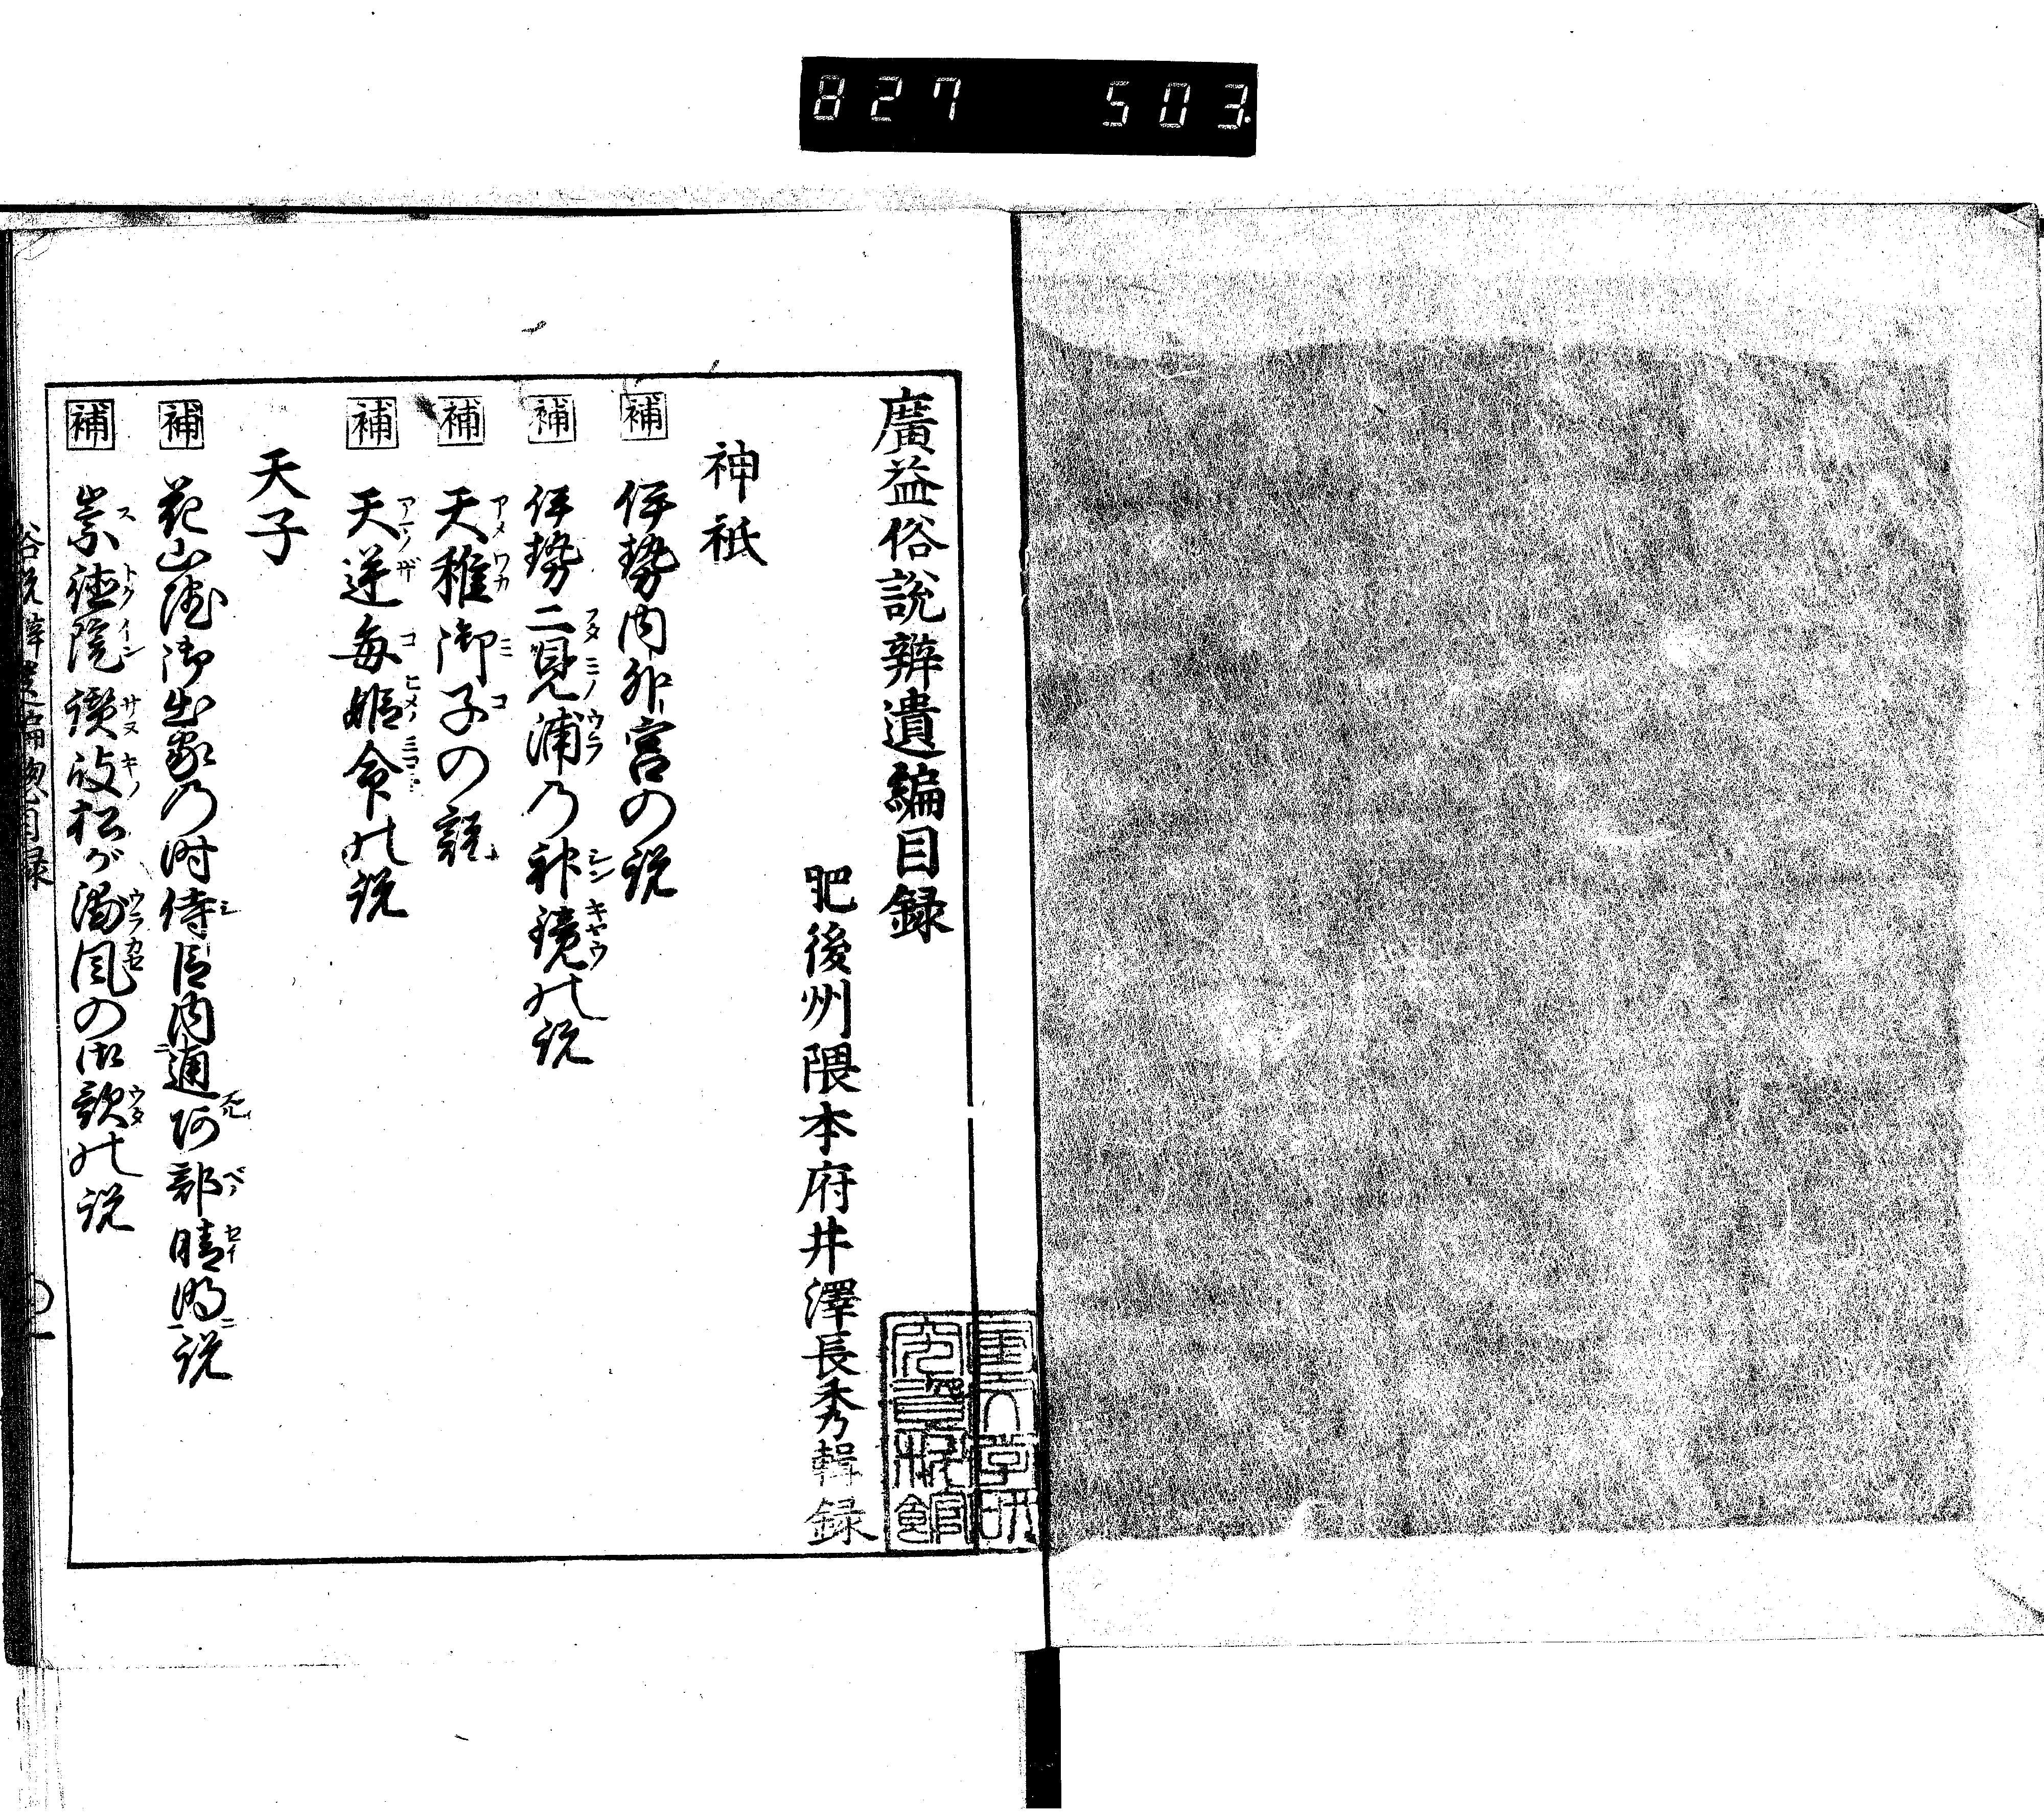 827 503
廣益俗說辨遺編目録
肥後州隈本府井澤長秀輯録
神祇
補 伊勢内外宮の説
補 伊勢二見浦乃神鏡の説
補 天稚御子の説
補 天逆毎姫命の説
天子
補 花山院御出家乃時侍臣内通阿部晴明説
補 崇徳院讃岐松が浦風の御歌の説
俗説辨遺編惣目録 一